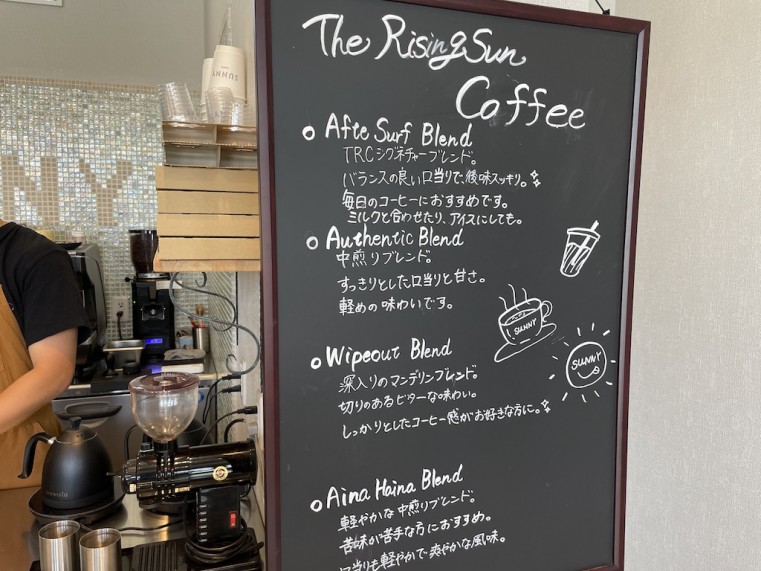 The Rising Sun
Coffee
Afte Surf Blend
TRCシグネチャーブレンド。
バランスの良い口当りで、後味スッキリ。
毎日のコーヒーにおすすめです。
ミルクと合わせたり、アイスにしても。
Authentic Blend
中煎りブレンド。
すっきりとした口当りと甘さ。
軽めの味わいです。
SUNNY
SUNNY
Wipeout Blend
深入りのマンデリンブレンド。
切りのあるビターな味わい。
しっかりとしたコーヒー感がお好きな方に。
Aina Haina Blend
軽やかな中煎りブレンド。
苦味が苦手な方におすすめ。
口当りも軽やかで爽やかな風味。
SUNNY
NY